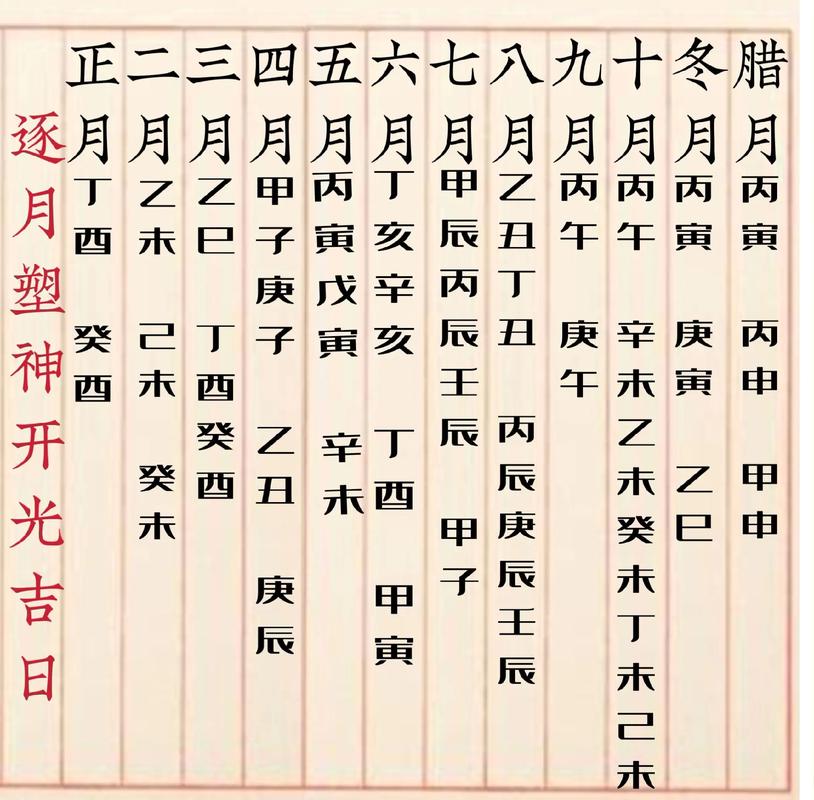 逐月塑神开光吉日
正月丁酉 癸酉
二月乙未 己未 癸未
三月乙巳 丁酉癸酉
四月甲子庚子 乙丑 庚辰
五月丙寅戊寅 辛未
六月丁亥辛亥 丁酉 甲寅
七月甲辰丙辰壬辰 甲子
八月乙丑丁丑 丙辰庚辰壬辰
九月丙午 庚午
十月丙午 辛未乙未癸未丁未己未
冬月丙寅 庚寅 乙巳
腊月丙寅 丙申 甲申